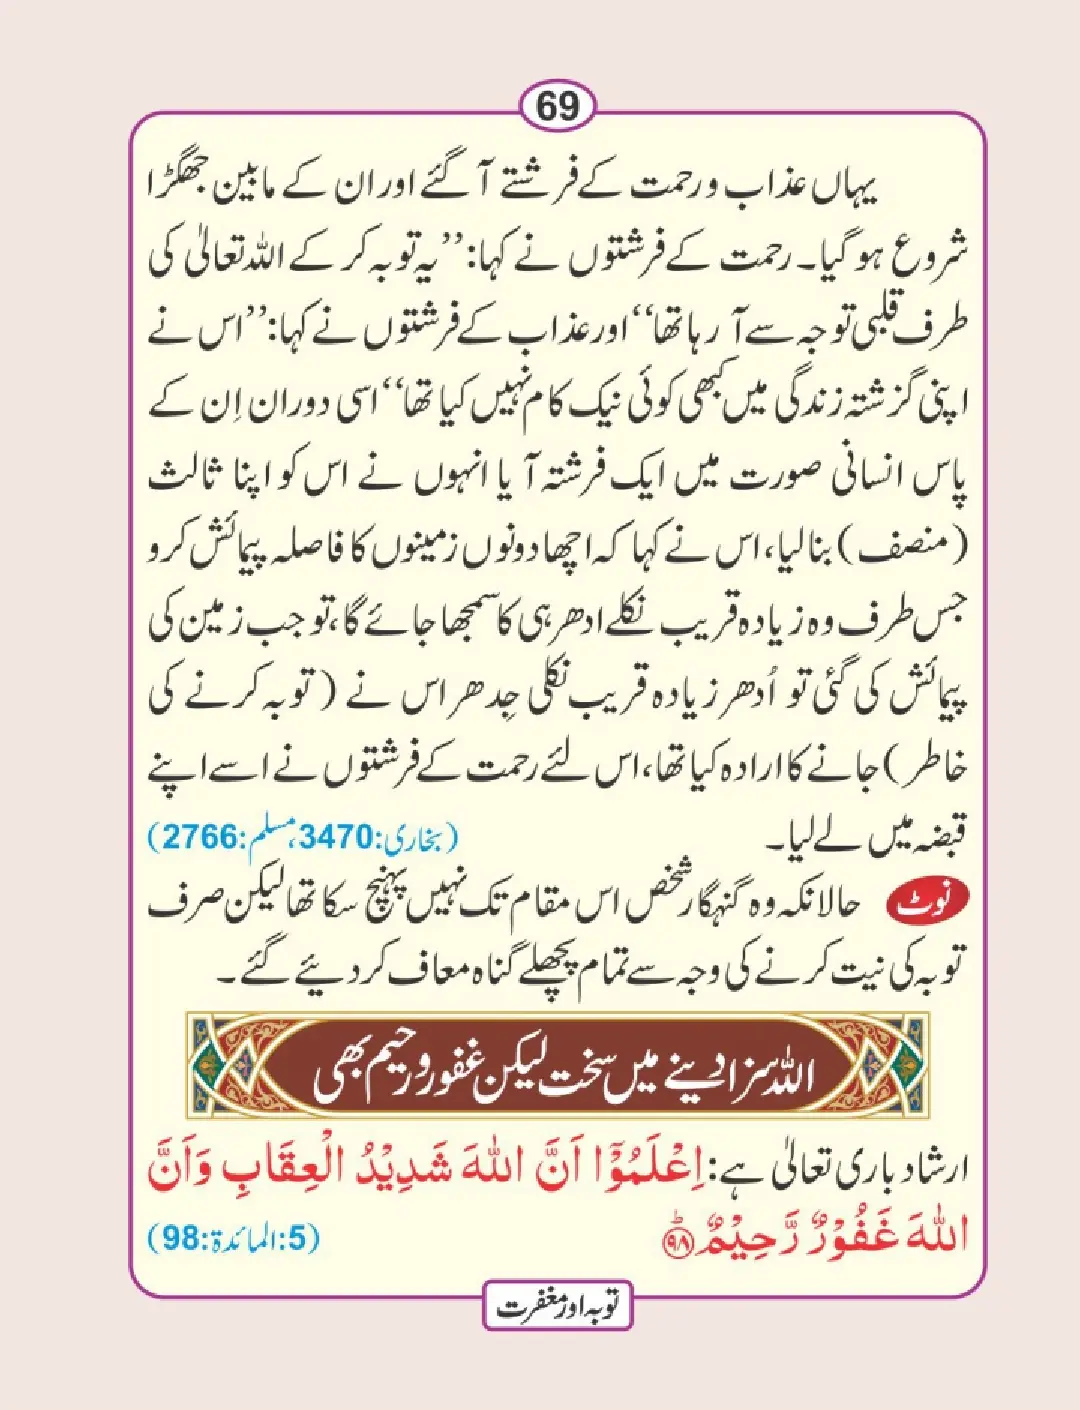 69
یہاں عذاب و رحمت کے فرشتے آ گئے اور ان کے مابین جھگڑا
شروع ہو گیا۔ رحمت کے فرشتوں نے کہا: ’’یہ توبہ کر کے اللہ تعالیٰ کی
طرف قلبی توجہ سے آ رہا تھا‘‘ اور عذاب کے فرشتوں نے کہا: ’’اس نے
اپنی گزشتہ زندگی میں کبھی کوئی نیک کام نہیں کیا تھا‘‘ اسی دوران اِن کے
پاس انسانی صورت میں ایک فرشتہ آیا انہوں نے اس کو اپنا ثالث
(منصف) بنا لیا، اس نے کہا کہ اچھا دونوں زمینوں کا فاصلہ پیمائش کرو
جس طرف وہ زیادہ قریب نکلے ادھر ہی کا سمجھا جائے گا، تو جب زمین کی
پیمائش کی گئی تو اُدھر زیادہ قریب نکلی جِدھر اس نے (توبہ کرنے کی
خاطر) جانے کا ارادہ کیا تھا، اس لئے رحمت کے فرشتوں نے اسے اپنے
قبضہ میں لے لیا۔ (بخاری:3470، مسلم:2766)
نوٹ حالانکہ وہ گنہگار شخص اس مقام تک نہیں پہنچ سکا تھا لیکن صرف
توبہ کی نیت کرنے کی وجہ سے تمام پچھلے گناہ معاف کر دیئے گئے۔
اللہ سزا دینے میں سخت لیکن غفور و رحیم بھی
ارشاد باری تعالیٰ ہے: اِعْلَمُوْۤا اَنَّ اللهَ شَدِیْدُ الْعِقَابِ وَاَنَّ
اللهَ غَفُوْرٌ رَّحِیْمٌ ؕ﴿۹۸﴾ (5:المائدة:98)
توبہ اور مغفرت